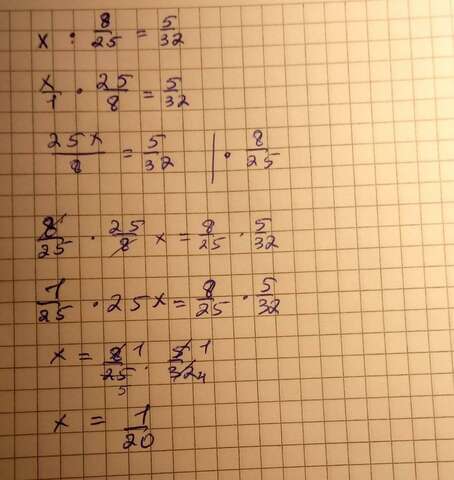 x : 8/25 = 5/32
x/1 · 25/8 = 5/32
25x/8 = 5/32 | · 8/25
8/25 · 25/8 x = 8/25 · 5/32
1/25 · 25x = 8/25 · 5/32
x = 8 1/25 5 · 5 1/32 4
x = 1/20